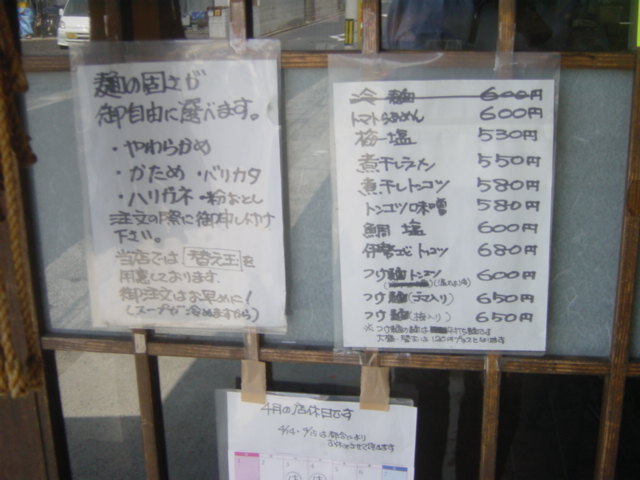 麺の固さが
御自由に選べます。
・やわらかめ
・かため ・バリカタ
・ハリガネ ・粉おとし
注文の際に御申し付け
下さい。
当店では 替え玉 を
用意しております
御注文はお早めに!
(スープが冷めますから)
冷 麺 600円
トマトらぁめん 600円
梅塩 530円
煮干しラーメン 550円
煮干しトンコツ 580円
トンコツ味噌 580円
鯛 塩 600円
伊勢エビトンコツ 680円
つけ麺トンコツ 600円
つけ麺(ゴマ入り) 650円
つけ麺(梅入り) 650円
※つけ麺の麺は 平打ち麺です
大盛・替玉は120円プラスとなります
4月の店休日です
4/14・4/15は都合により
お休みさせて頂きます
1 2 3 4 5 6 7
休 休